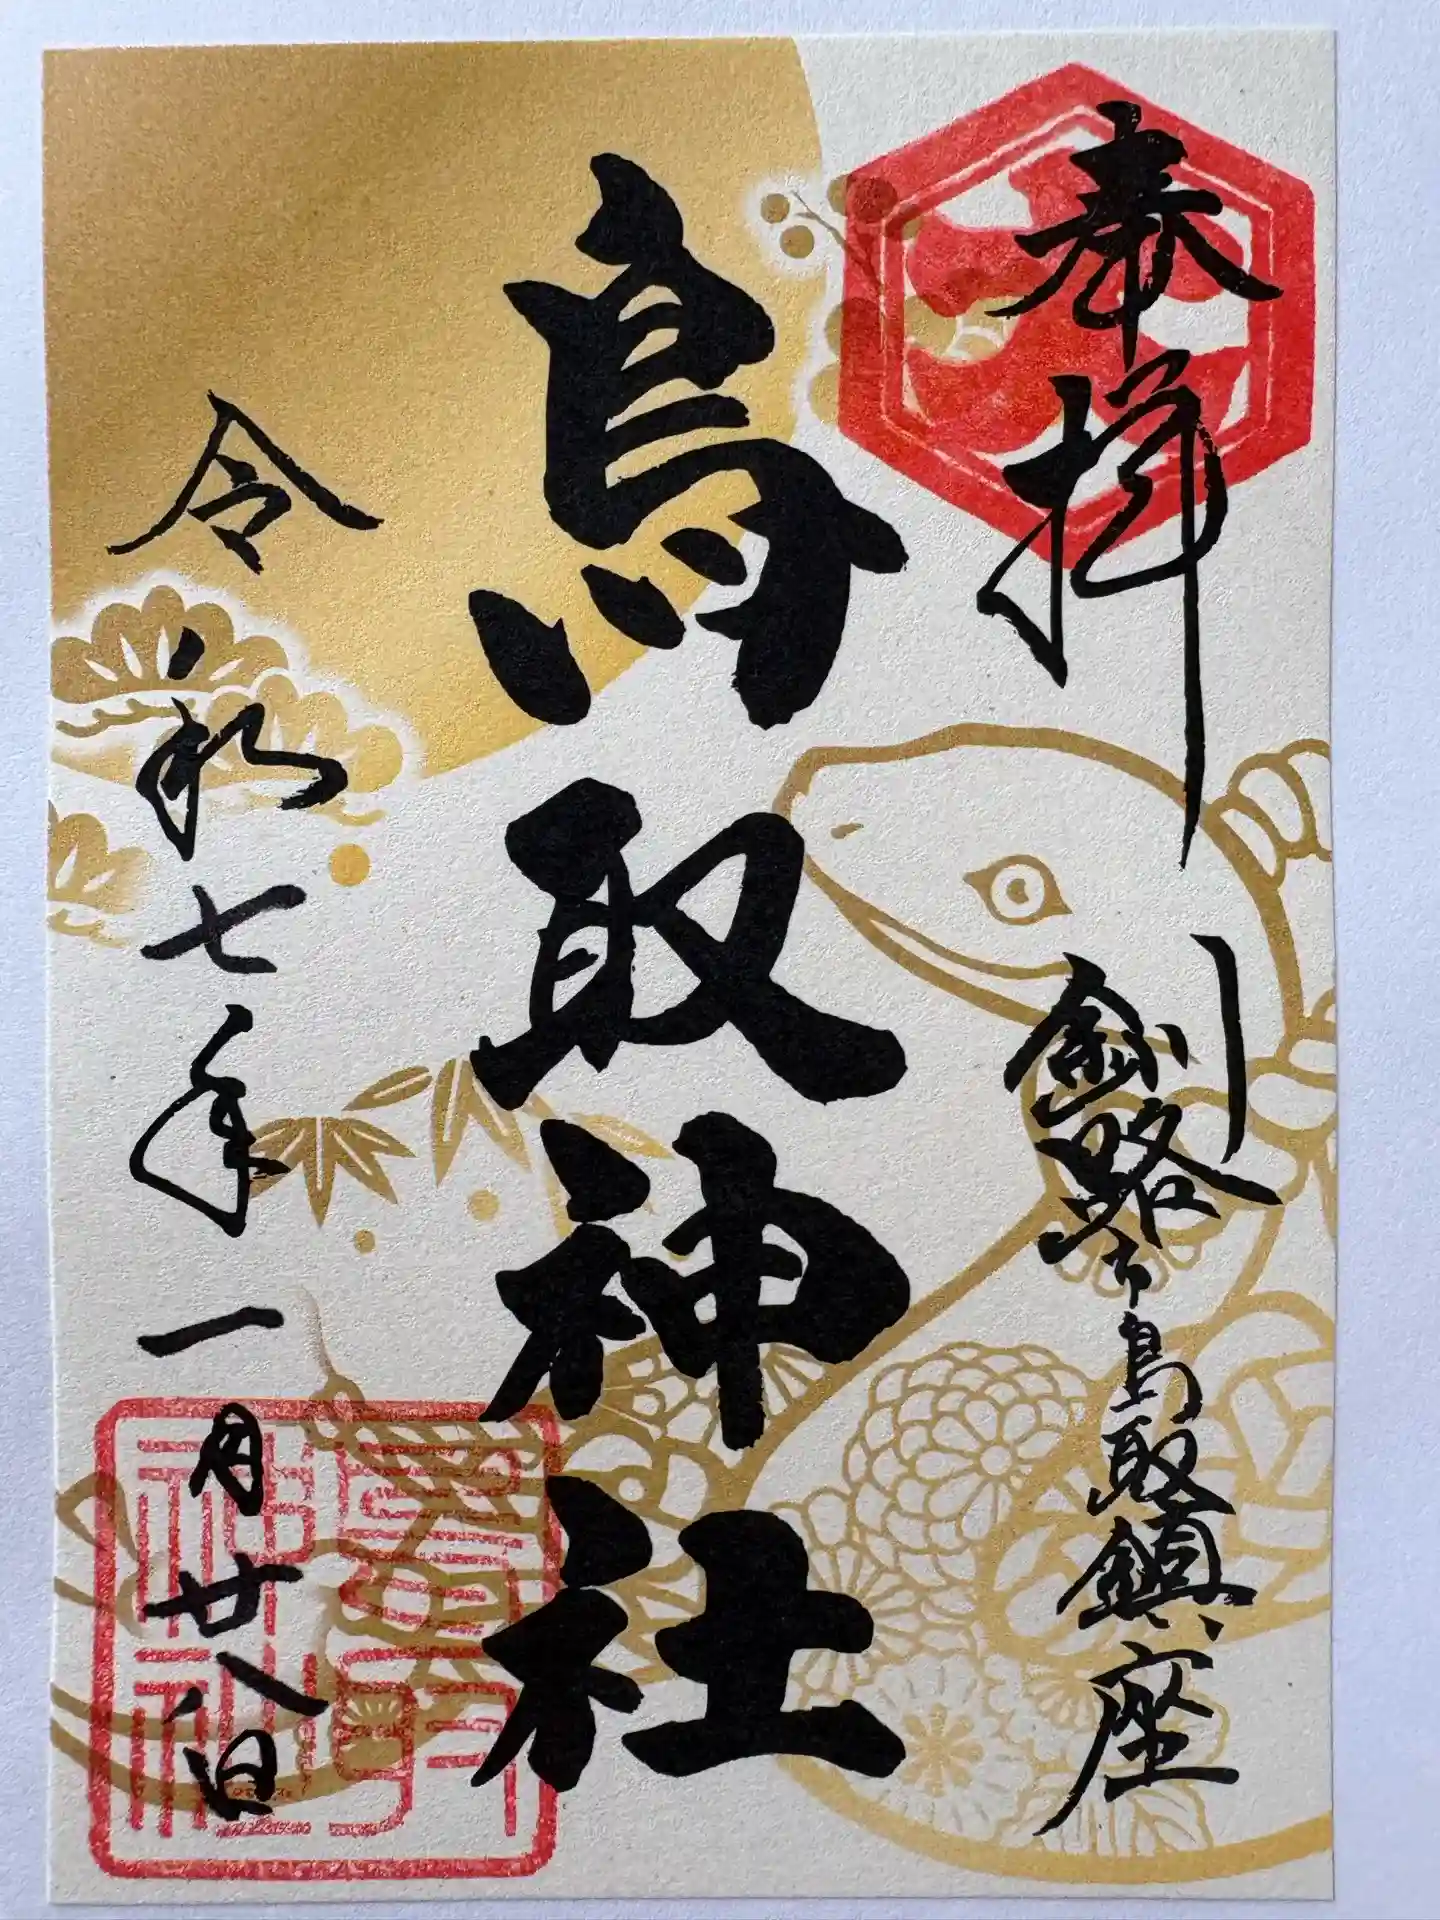 奉拝
釧路市鳥取鎮座
鳥取神社
令和七年一月廿八日